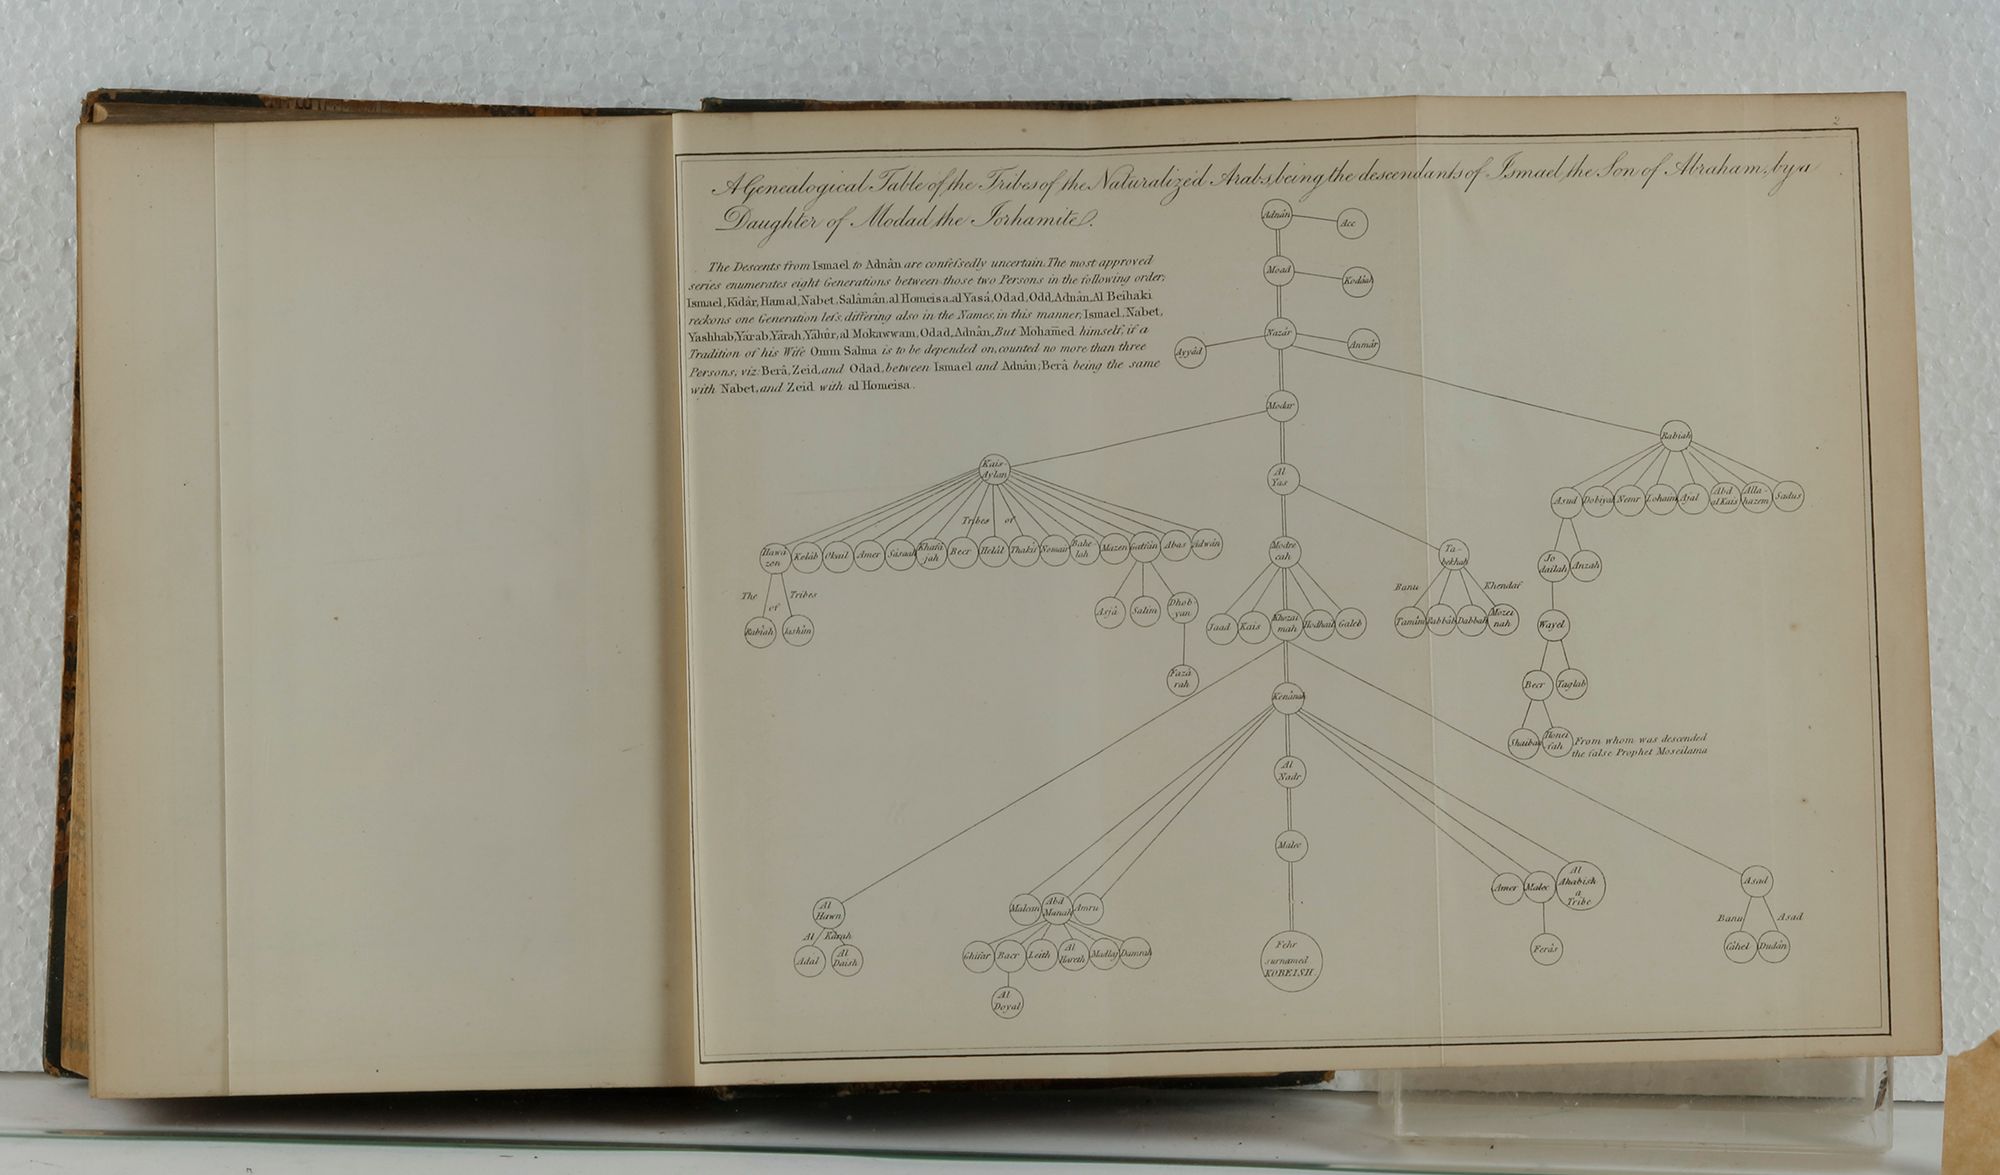 2
A Genealogical Table of the Tribes of the Naturalized Arabs, being the descendants of Ismael, the Son of Abraham, by a
Daughter of Modad the Jorhamite.
The Descents from Ismael to Adnân are confeſsedly uncertain. The most approved
series enumerates eight Generations between those two Persons in the following order;
Ismael, Kidâr, Hamal, Nabet, Salâmân, al Homeisa, al Yasá, Odad, Odd, Adnân, Al Beihaki
reckons one Generation leſs, differing also in the Names, in this manner; Ismael, Nabet,
Yashhab, Yárab, Yârah, Yâhûr, al Mokawwam, Odad, Adnân, But Mohamed himself, if a
Tradition of his Wife Omm Salma is to be depended on, counted no more than three
Persons, viz: Berâ, Zeid, and Odad, between Ismael and Adnân; Berâ being the same
with Nabet, and Zeid with al Homeisa.
Adnân
Acc
Moad
Kodâah
Nazâr
Ayyâd
Anmâr
Modar
Rabiah
Kais-
Aylan
Al
Yas
Asud
Dobiyah
Nemr
Lohaim
Ajal
Abd
al Kais
Alla-
hazem
Sadus
Tribes of
Hawâ
zon
Kelâb
Okail
Amer
Sâsaah
Khafâ
jah
Becr
Helâl
Thakîf
Nomair
Bahe
lah
Mazen
Gatfân
Abas
Adwân
Modre
cah
Ta-
bekhah
Jo
dailah
Anzah
The Tribes
of
Rabîah
Jashûm
Asjâ
Salim
Dhob-
yan
Fazâ
rah
Jaad
Kais
Khozai
mah
Hodhail
Galeb
Banu Khendaf
Tamîm
Rabbâb
Dabbah
Mozei
nah
Wayel
Becr
Taglab
Shaiban
Honei
fah
From whom was descended
the false Prophet Moseilama
Kenânah
Al
Nadr
Malec
Al
Hawn
Al Kârah
Adal
Al
Daish
Malcan
Abd
Manah
Amru
Ghifar
Bacr
Leith
Al
Hareth
Madlaj
Damrah
Al
Doyal
Fehr
surnamed
KOREISH.
Amer
Malec
Al
Ahabish
a
Tribe
Ferâs
Asad
Banu Asad
Câhel
Dudân